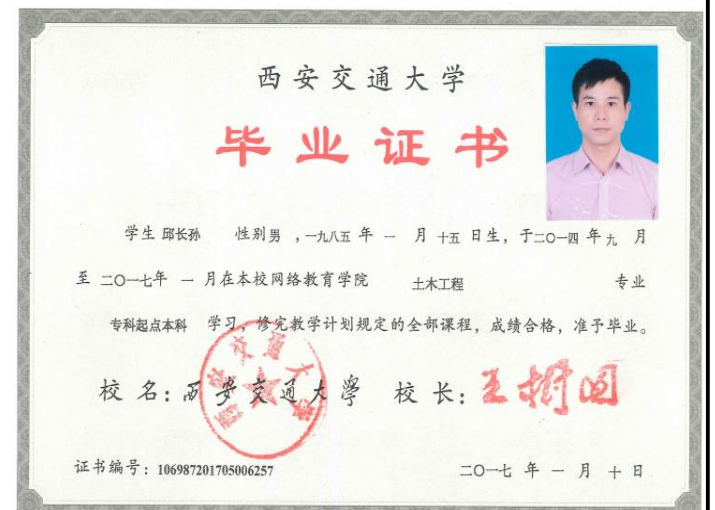 西安交通大学
毕业证书
学生 邱长孙 性别 男 ，一九八五 年 一 月 十五 日生，于二〇一四 年 九 月
至 二〇一七年 一 月在本校网络教育学院 土木工程 专业
专科起点本科 学习，修完教学计划规定的全部课程，成绩合格，准予毕业。
校 名：西安交通大學 校 长：王树国
西安交通大学
证书编号：106987201705006257 二〇一七 年 一 月 十 日